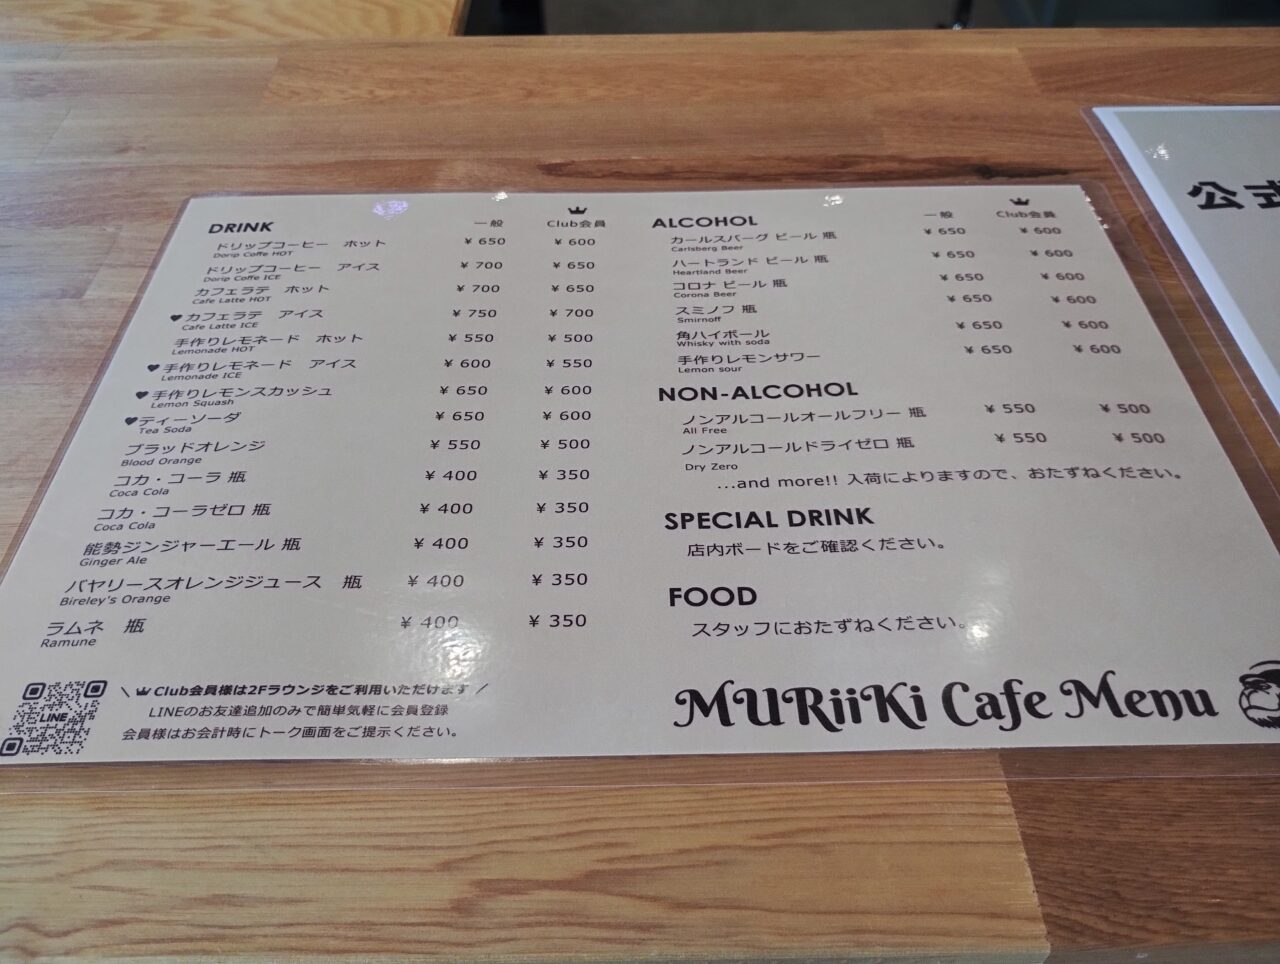 DRINK 一般 Club会員
ドリップコーヒー ホット ¥ 650 ¥ 600
Dorip Coffe HOT
ドリップコーヒー アイス ¥ 700 ¥ 650
Dorip Coffe ICE
カフェラテ ホット ¥ 700 ¥ 650
Cafe Latte HOT
♥カフェラテ アイス ¥ 750 ¥ 700
Cafe Latte ICE
手作りレモネード ホット ¥ 550 ¥ 500
Lemonade HOT
♥手作りレモネード アイス ¥ 600 ¥ 550
Lemonade ICE
♥手作りレモンスカッシュ ¥ 650 ¥ 600
Lemon Squash
♥ティーソーダ ¥ 650 ¥ 600
Tea Soda
ブラッドオレンジ ¥ 550 ¥ 500
Blood Orange
コカ・コーラ 瓶 ¥ 400 ¥ 350
Coca Cola
コカ・コーラゼロ 瓶 ¥ 400 ¥ 350
Coca Cola
能勢ジンジャーエール 瓶 ¥ 400 ¥ 350
Ginger Ale
バヤリースオレンジジュース 瓶 ¥ 400 ¥ 350
Bireley's Orange
ラムネ 瓶 ¥ 400 ¥ 350
Ramune
LINE
\ Club会員様は2Fラウンジをご利用いただけます /
LINEのお友達追加のみで簡単気軽に会員登録
会員様はお会計時にトーク画面をご提示ください。
ALCOHOL 一般 Club会員
カールスバーグ ビール 瓶 ¥ 650 ¥ 600
Carlsberg Beer
ハートランド ビール 瓶 ¥ 650 ¥ 600
Heartland Beer
コロナ ビール 瓶 ¥ 650 ¥ 600
Corona Beer
スミノフ 瓶 ¥ 650 ¥ 600
Smirnoff
角ハイボール ¥ 650 ¥ 600
Whisky with soda
手作りレモンサワー ¥ 650 ¥ 600
Lemon sour
NON-ALCOHOL
ノンアルコールオールフリー 瓶 ¥ 550 ¥ 500
All Free
ノンアルコールドライゼロ 瓶 ¥ 550 ¥ 500
Dry Zero
...and more!! 入荷によりますので、おたずねください。
SPECIAL DRINK
店内ボードをご確認ください。
FOOD
スタッフにおたずねください。
MURiiKi Cafe Menu
公式